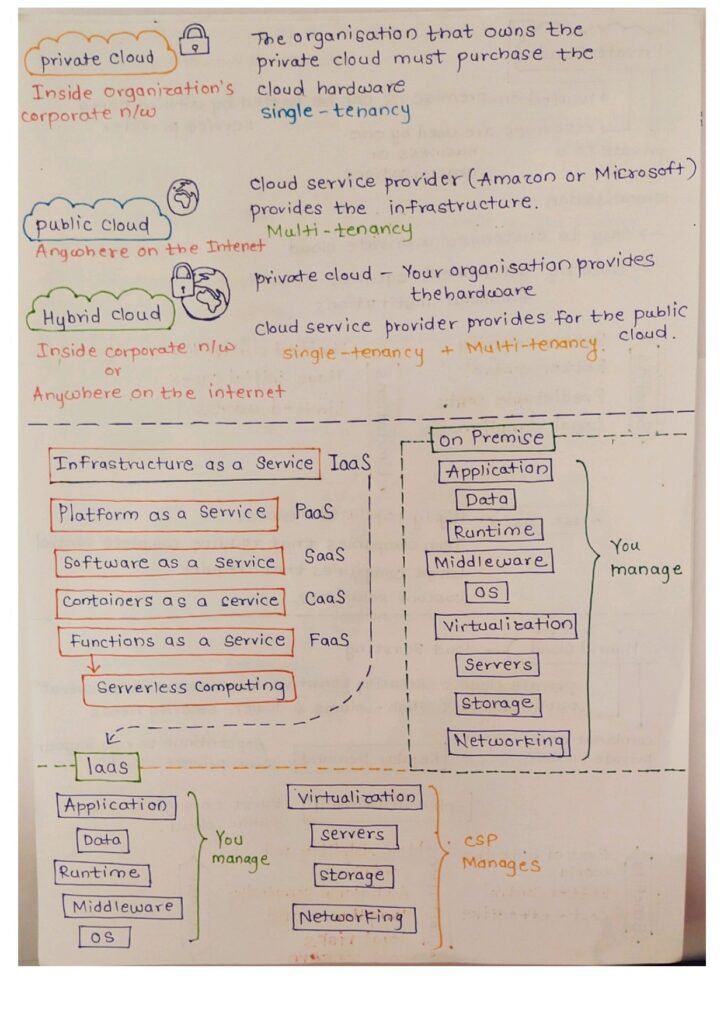 private cloud
Inside organization's
corporate n/w
The organisation that owns the
private cloud must purchase the
cloud hardware
single-tenancy
public cloud
Anywhere on the Intenet
cloud service provider (Amazon or Microsoft)
provides the infrastructure.
Multi-tenancy
Hybrid cloud
Inside corporate n/w
or
Anywhere on the internet
private cloud - Your organisation provides
thehardware
cloud service provider provides for the public
cloud.
single-tenancy + Multi-tenancy.
Infrastructure as a Service IaaS
Platform as a Service PaaS
Software as a Service SaaS
Containers as a service CaaS
Functions as a Service FaaS
Serverless Computing
On Premise
Application
Data
Runtime
Middleware
OS
Virtualization
Servers
Storage
Networking
You
manage
Iaas
Application
Data
Runtime
Middleware
OS
You
manage
Virtualization
Servers
Storage
Networking
CSP
Manages